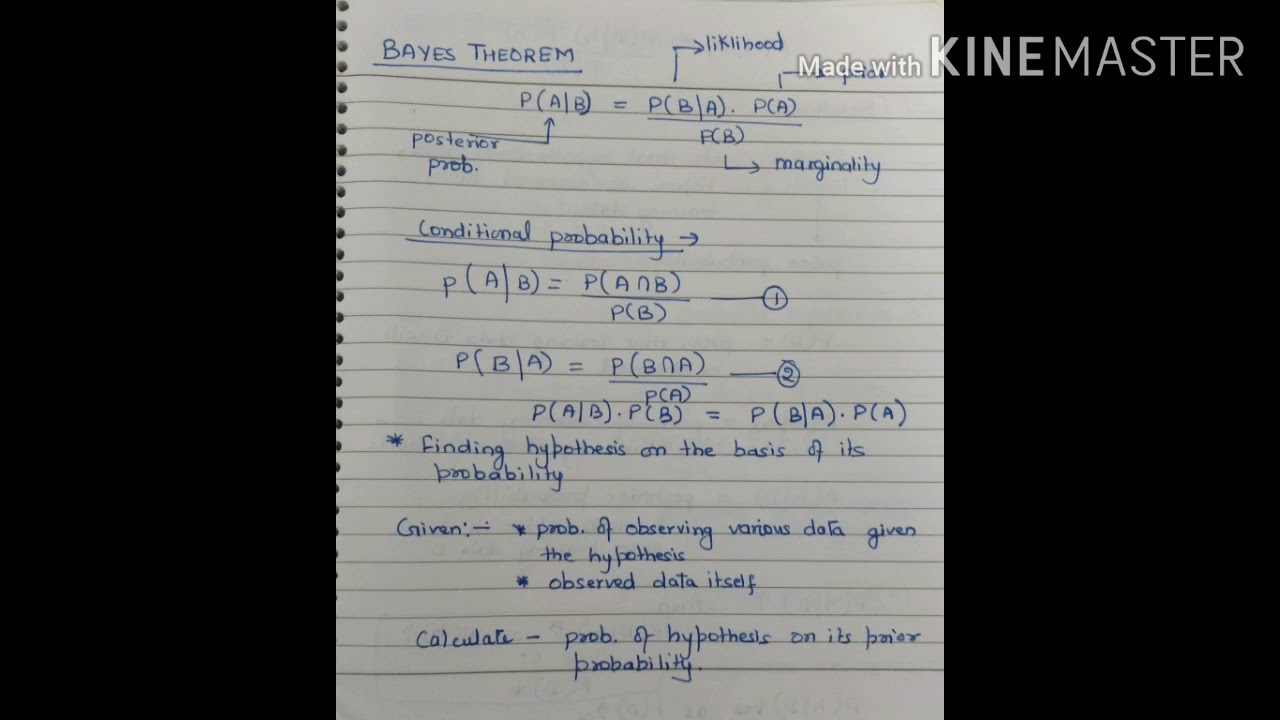 BAYES THEOREM
→liklihood
Made with KINEMASTER
P(A|B) = P(B|A). P(A)
P(B)
posterior
prob.
↳ marginality
Conditional probability →
P(A|B) = P(A∩B)
P(B)
①
P(B|A) = P(B∩A)
P(A)
②
P(A|B).P(B) = P(B|A).P(A)
* Finding hypothesis on the basis of its
probability
Given:- * prob. of observing various data given
the hypothesis
* observed data itself
Calculate - prob. of hypothesis on its prior
probability.